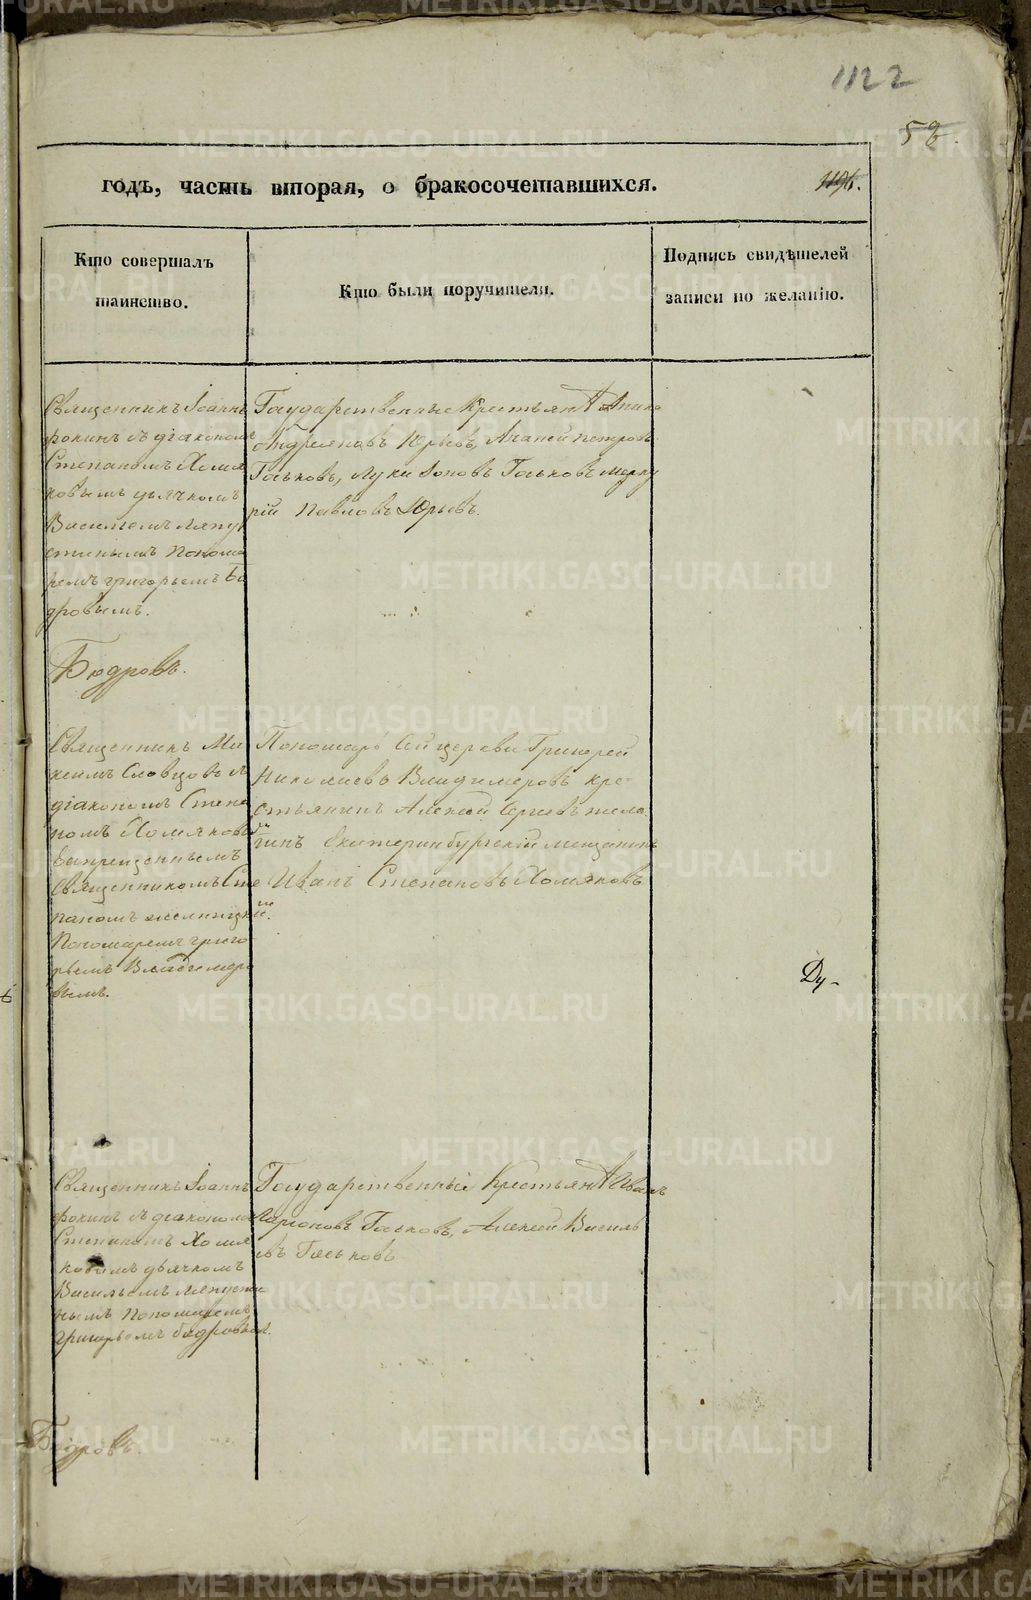 1122
58.
годъ, часть вторая, о бракосочетавшихся.
1196.
Кто совершалъ
таинство.
Кто были поручители.
Подпись свидѣтелей
записи по желанію.
Священникъ Іоаннъ
Фокинъ съ діакономъ
Степаномъ Хомя
ковымъ дьячкомъ
Васильемъ Ляпу
стинымъ Понома
ремъ Григорьемъ Бо
дровымъ.
Бодровъ.
Государственные Крестьяне
Андреяновъ Юрьевъ, Петровъ
Гаськовъ, Луки Гаськовъ Мерку
рій Павловъ Юрьевъ.
Священникъ Ми
хаилъ Словцовъ съ
діакономъ Степа
номъ Хомяковымъ
Запрещеннымъ
Священникомъ Сте
паномъ
Пономаремъ Григо
рьемъ Владимиро
вымъ.
Пономарь сей церкви Григорей
Николаевъ Владимеровъ кре
стьянинъ Алексей Сергеевъ
гинъ Екатеринбургскій мещанинъ
Иванъ Степановъ Хомяковъ
Ду-
Священникъ Іоаннъ
Фокинъ съ діакономъ
Степаномъ Хомя
ковымъ дьячкомъ
Васильемъ Ляпусти
нымъ Пономаремъ
Григорьемъ Бодровымъ.
Бодровъ.
Государственный Крестьян Иванъ
Ларионовъ Гаськовъ, Алексей Василь
евъ Гаськовъ
METRIKI.GASO-URAL.RU